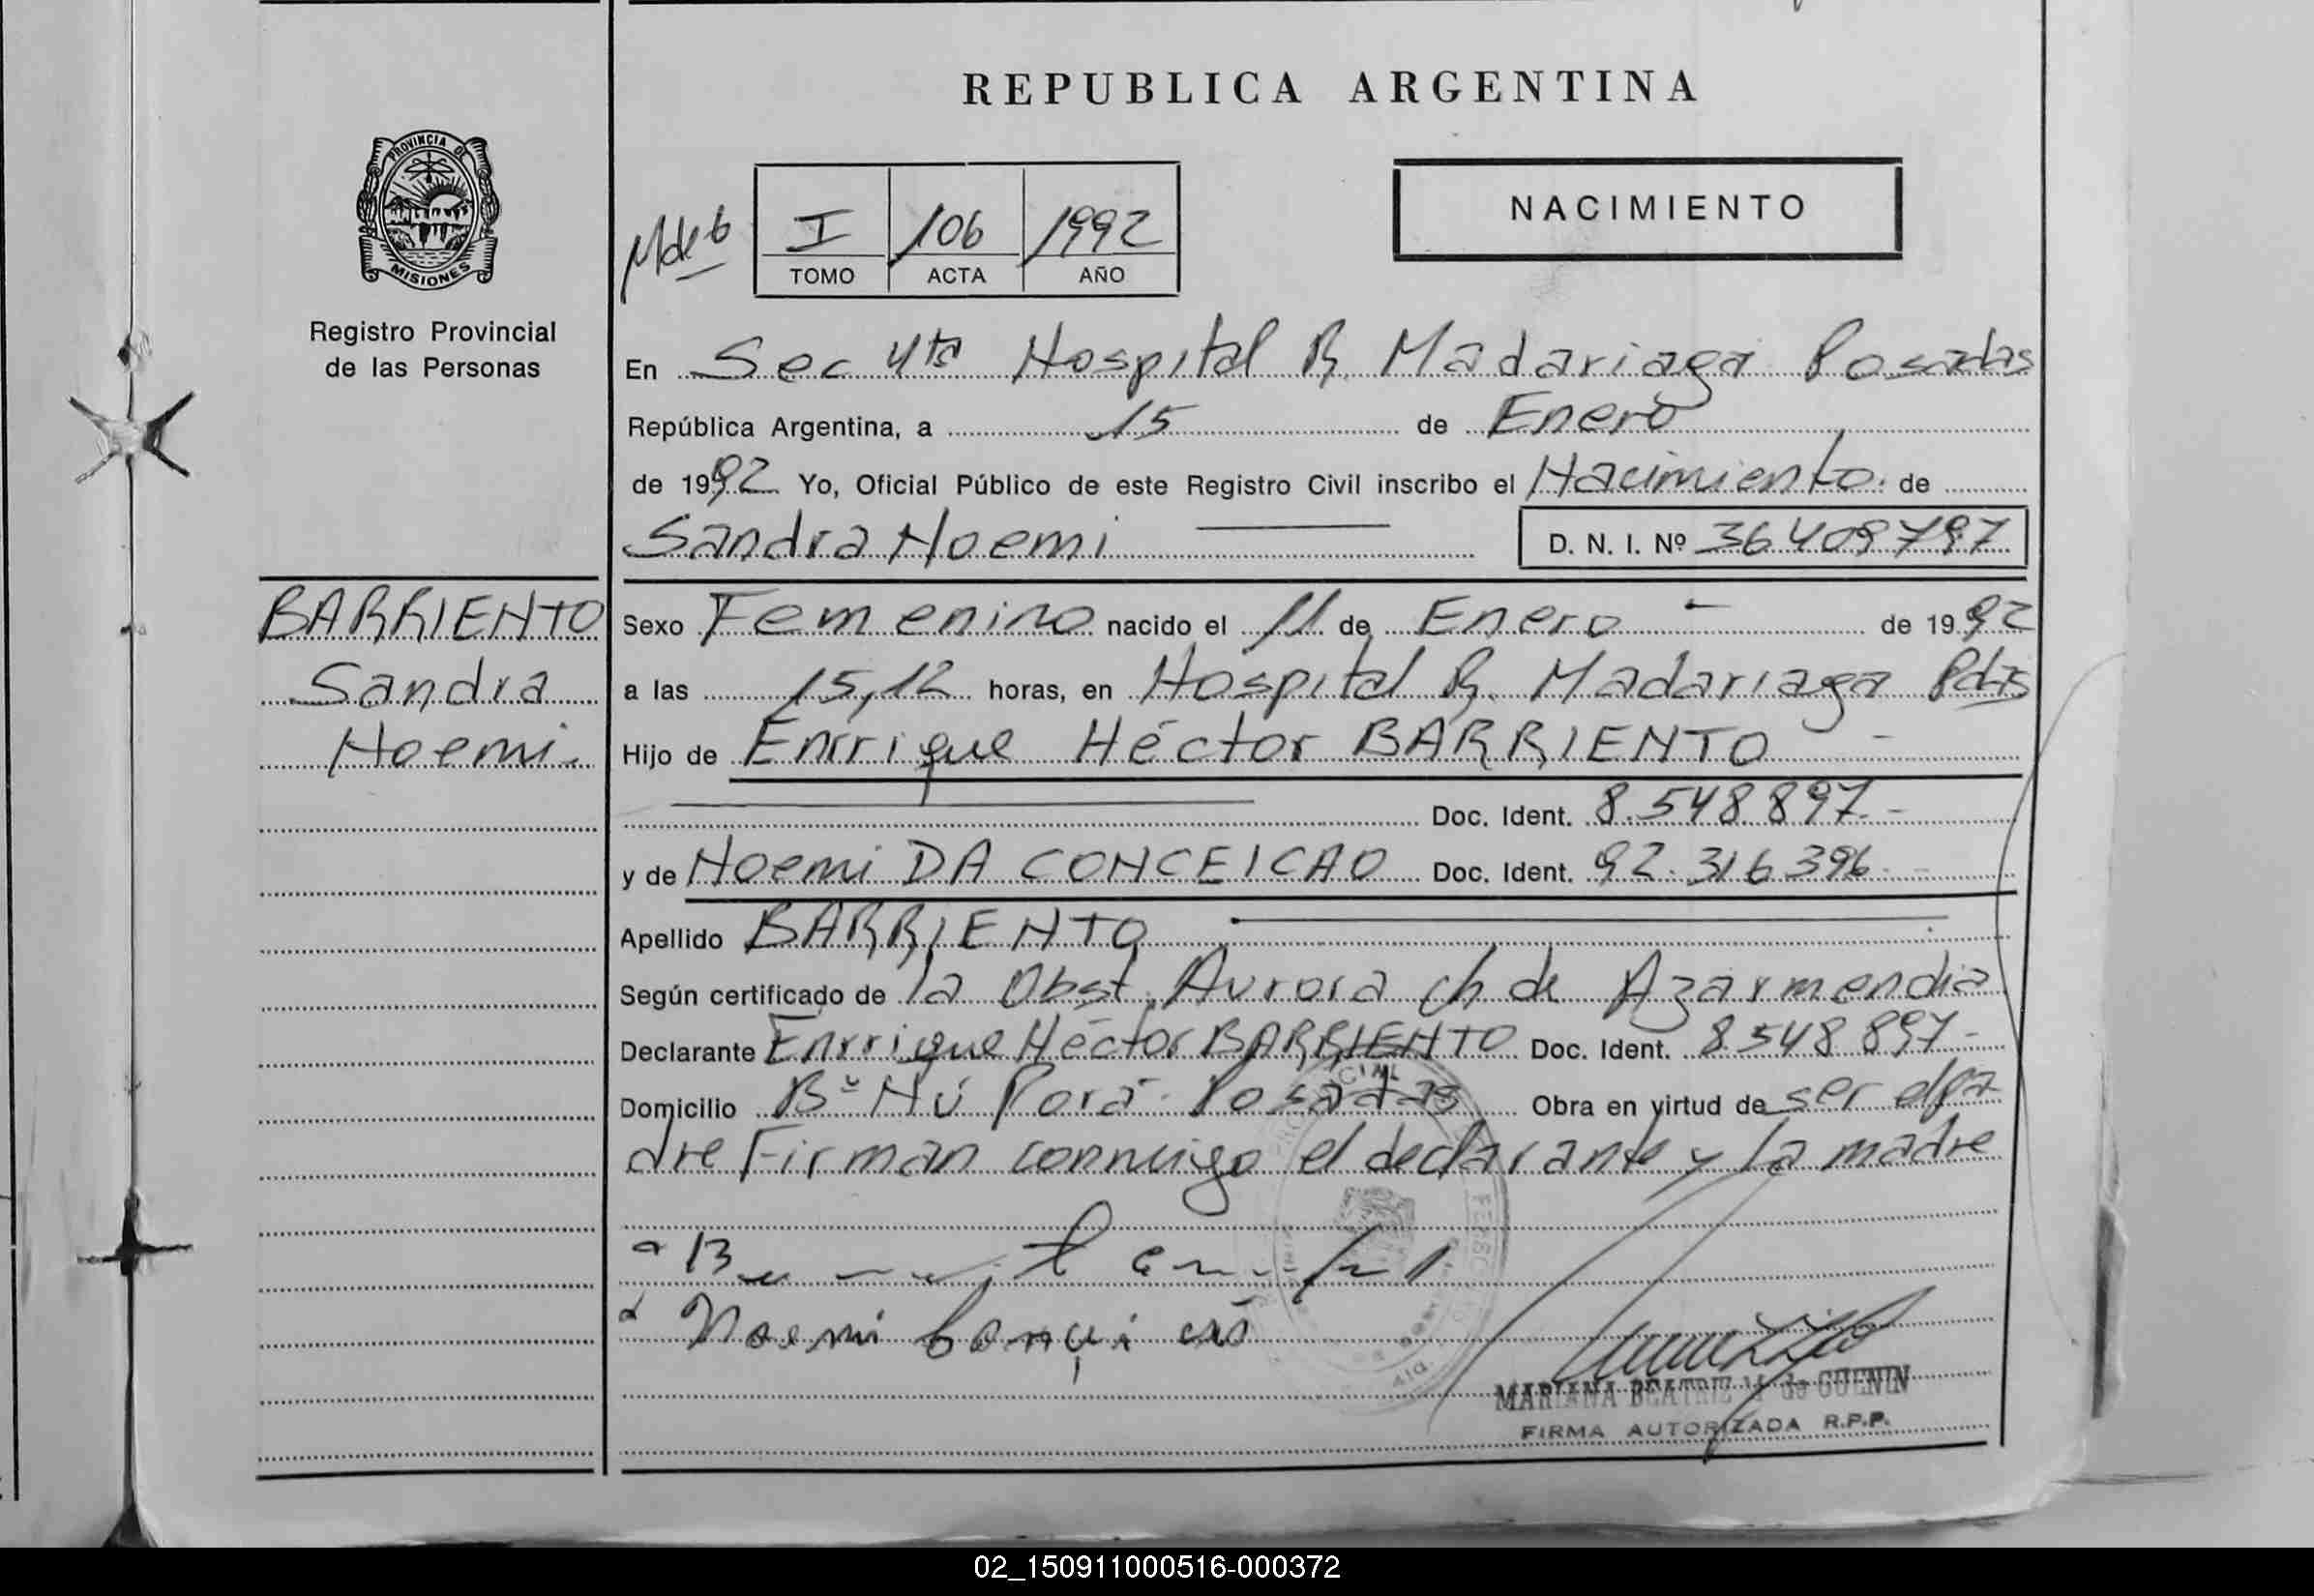 REPUBLICA ARGENTINA
PROVINCIA DE
MISIONES
Registro Provincial
de las Personas
NACIMIENTO
I 106 1992
TOMO ACTA AÑO
En Sec 4ta Hospital R. Madariaga Posadas
República Argentina, a 15 de Enero
de 1992 Yo, Oficial Público de este Registro Civil inscribo el Nacimiento de
Sandra Noemi D. N. I. Nº 36409797
BARRIENTO
Sandra
Noemi.
Sexo Femenino nacido el 11 de Enero de 1992
a las 15,12 horas, en Hospital R. Madariaga Pdas
Hijo de Enrrique Héctor BARRIENTO
Doc. Ident. 8.548.897.-
y de Noemi DA CONCEICAO Doc. Ident. 92.316.396.-
Apellido BARRIENTO
Según certificado de la Obst. Aurora Ch de Azarmendia
Declarante Enrrique Héctor BARRIENTO Doc. Ident. 8.548.897-
Domicilio Bº Ñú Porá - Posadas Obra en virtud de ser el pa
dre Firman conmigo el declarante y la madre
Noemi
MARIANA BEATRIZ M. de GUENIN
FIRMA AUTORIZADA R.P.P.
02_150911000516-000372